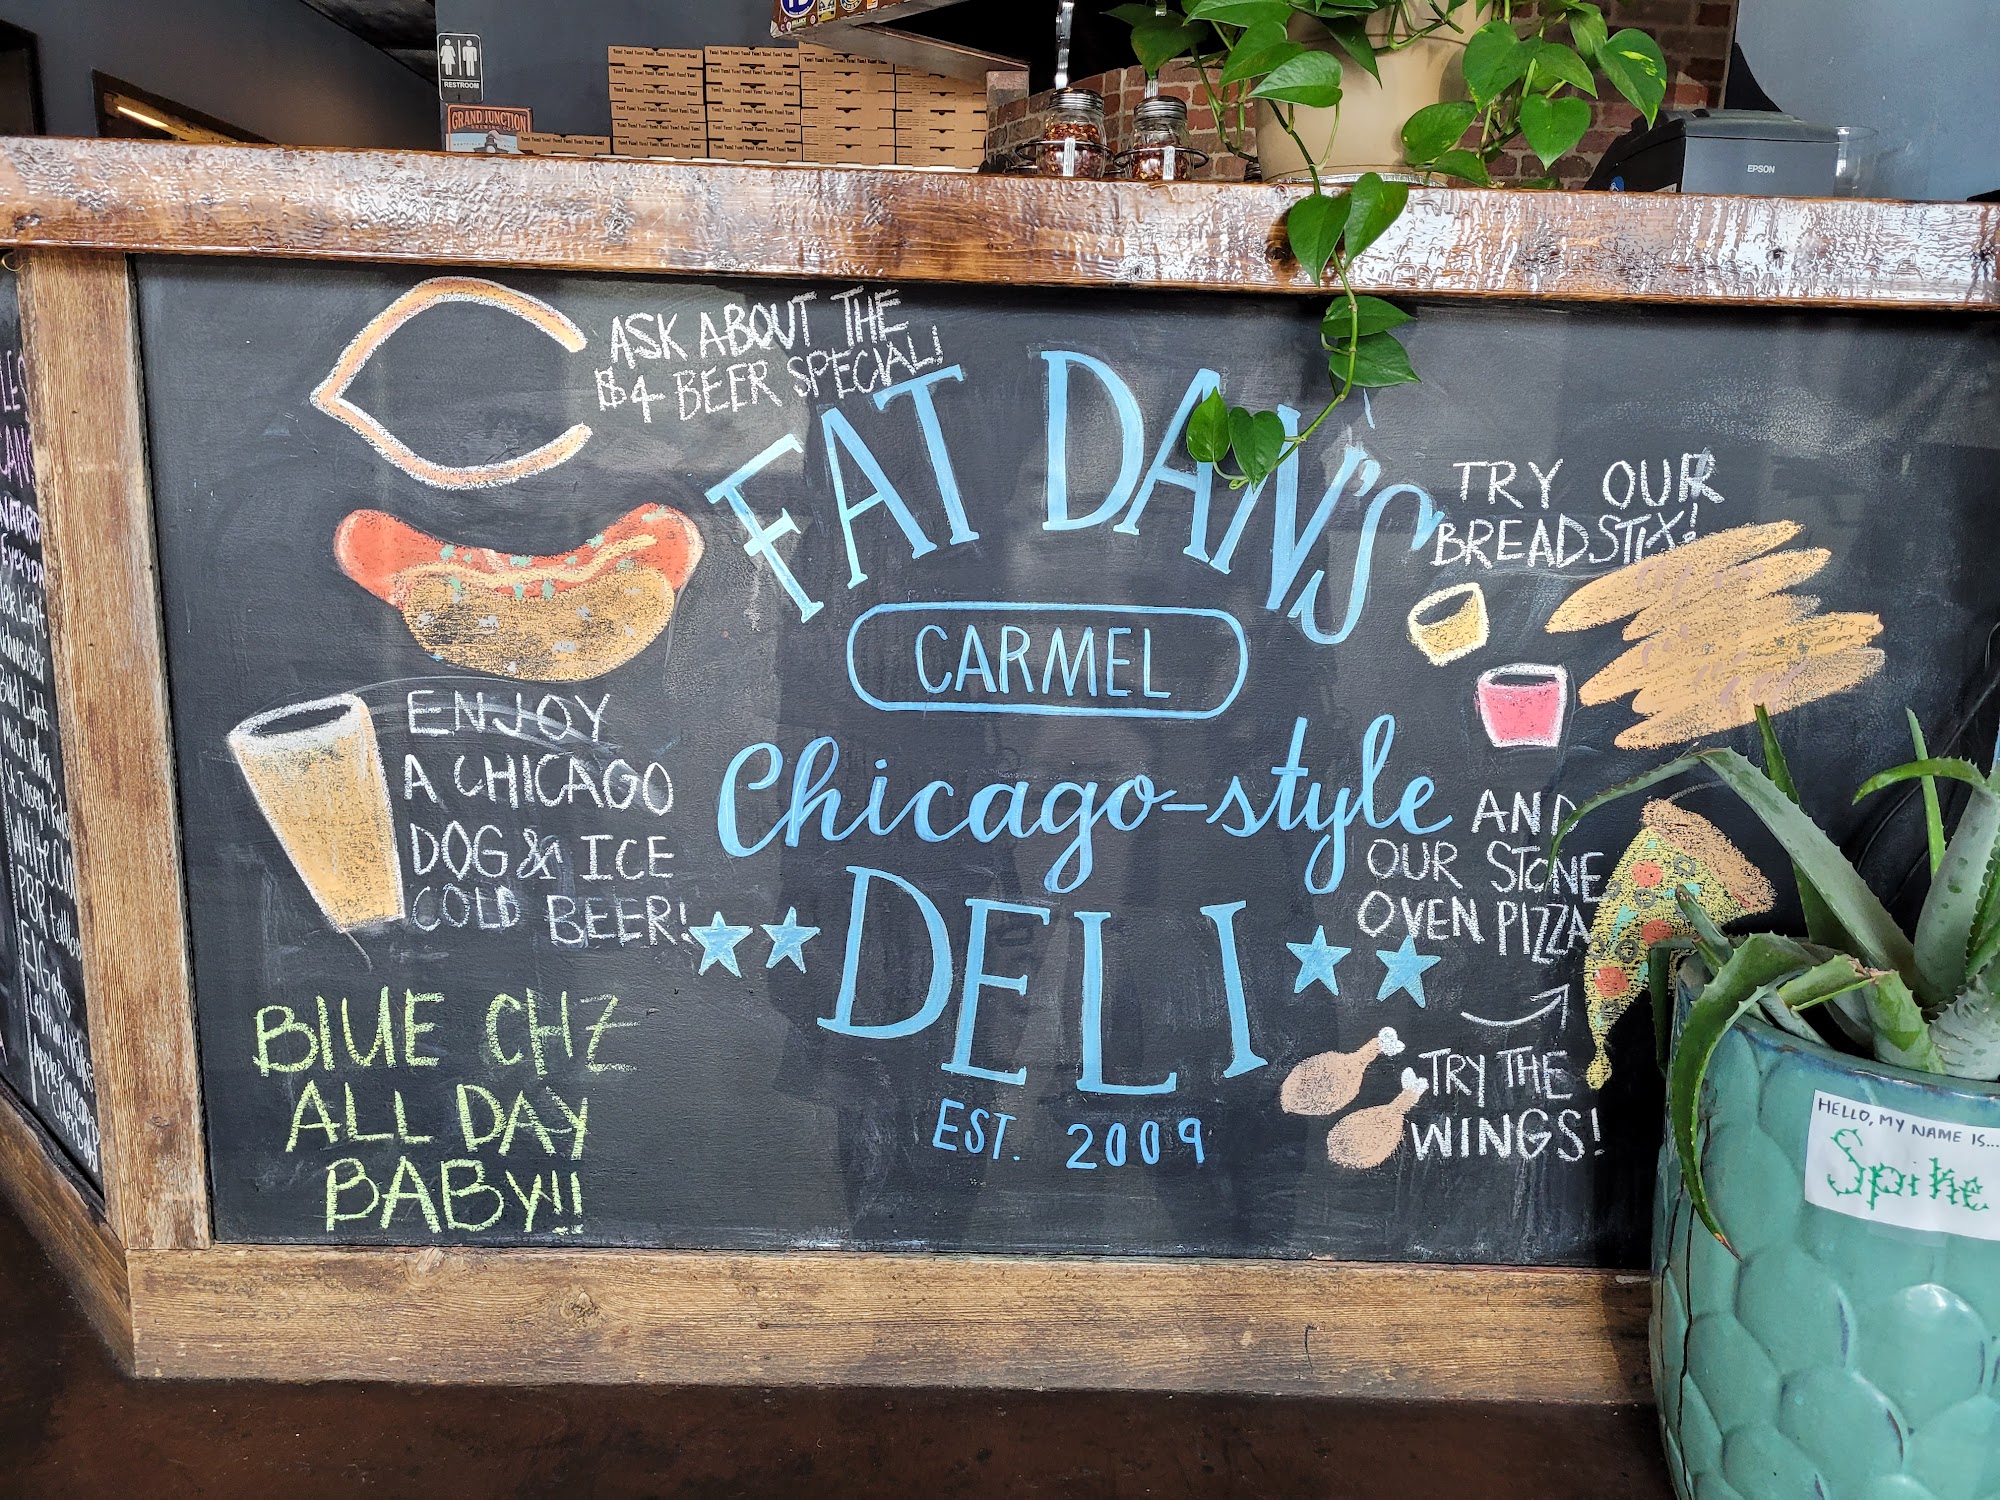 RESTROOM
GRAND JUNCTION
Yum! Yum! Yum! Yum! Yum!
EPSON
ASK ABOUT THE
$4 BEER SPECIAL!
FAT DAN'S
CARMEL
Chicago-style
DELI
EST. 2009
ENJOY
A CHICAGO
DOG & ICE
COLD BEER!
BLUE CHZ
ALL DAY
BABY!!
TRY OUR
BREADSTIX!
AND
OUR STONE
OVEN PIZZA
TRY THE
WINGS!
HELLO, MY NAME IS...
Spike
Light
Bud Light
Mich Ultra
WHITE
PBR tallboy
El Gato